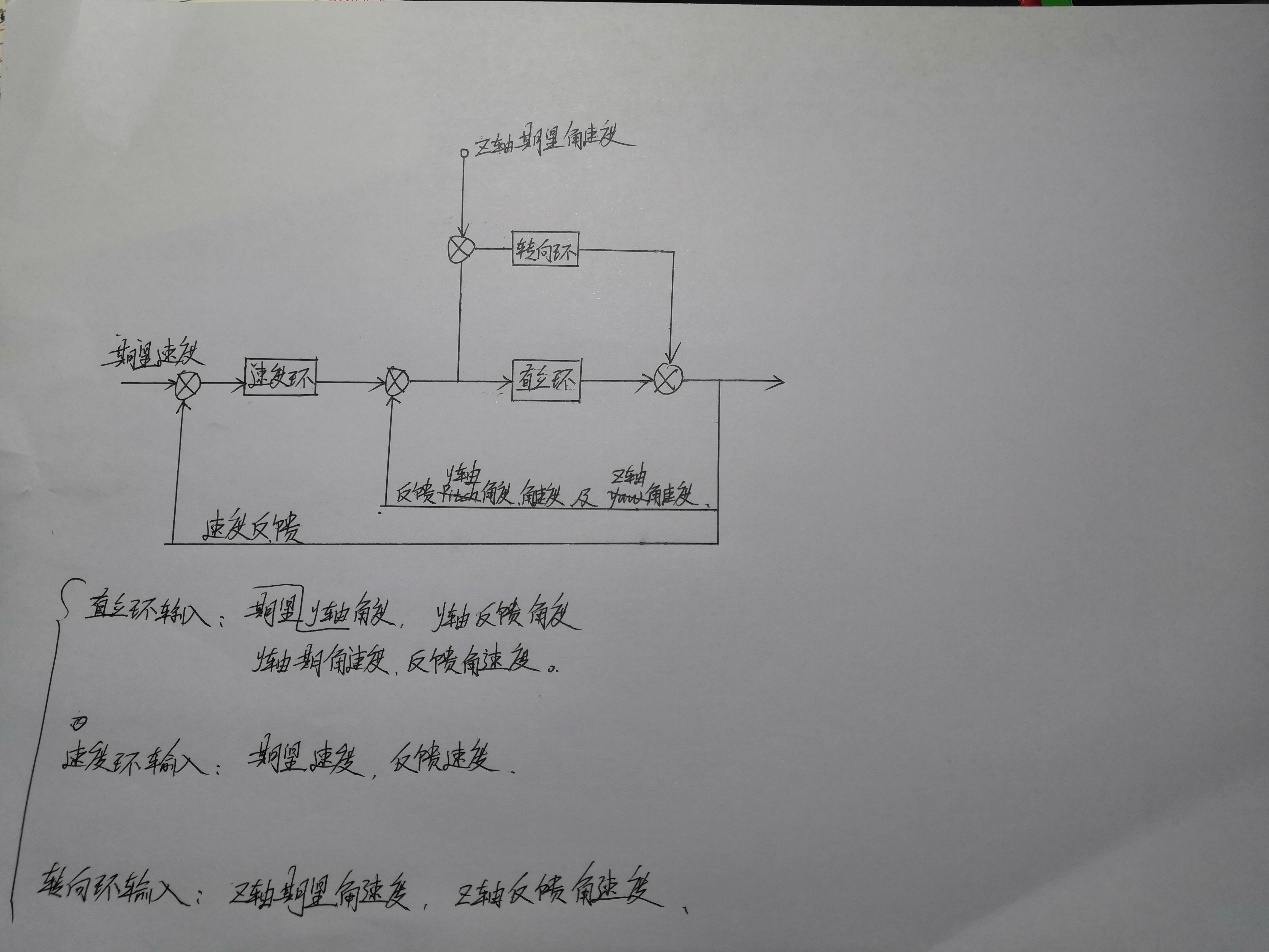 Z轴期望角速度
转向环
期望速度
速度环
直立环
Y轴 Z轴
反馈角度、角速度 及 Yaw角速度.
速度反馈
直立环输入: 期望Y轴角度, Y轴反馈角度
Y轴期角速度, 反馈角速度。
速度环输入: 期望速度, 反馈速度.
转向环输入: Z轴期望角速度, Z轴反馈角速度、